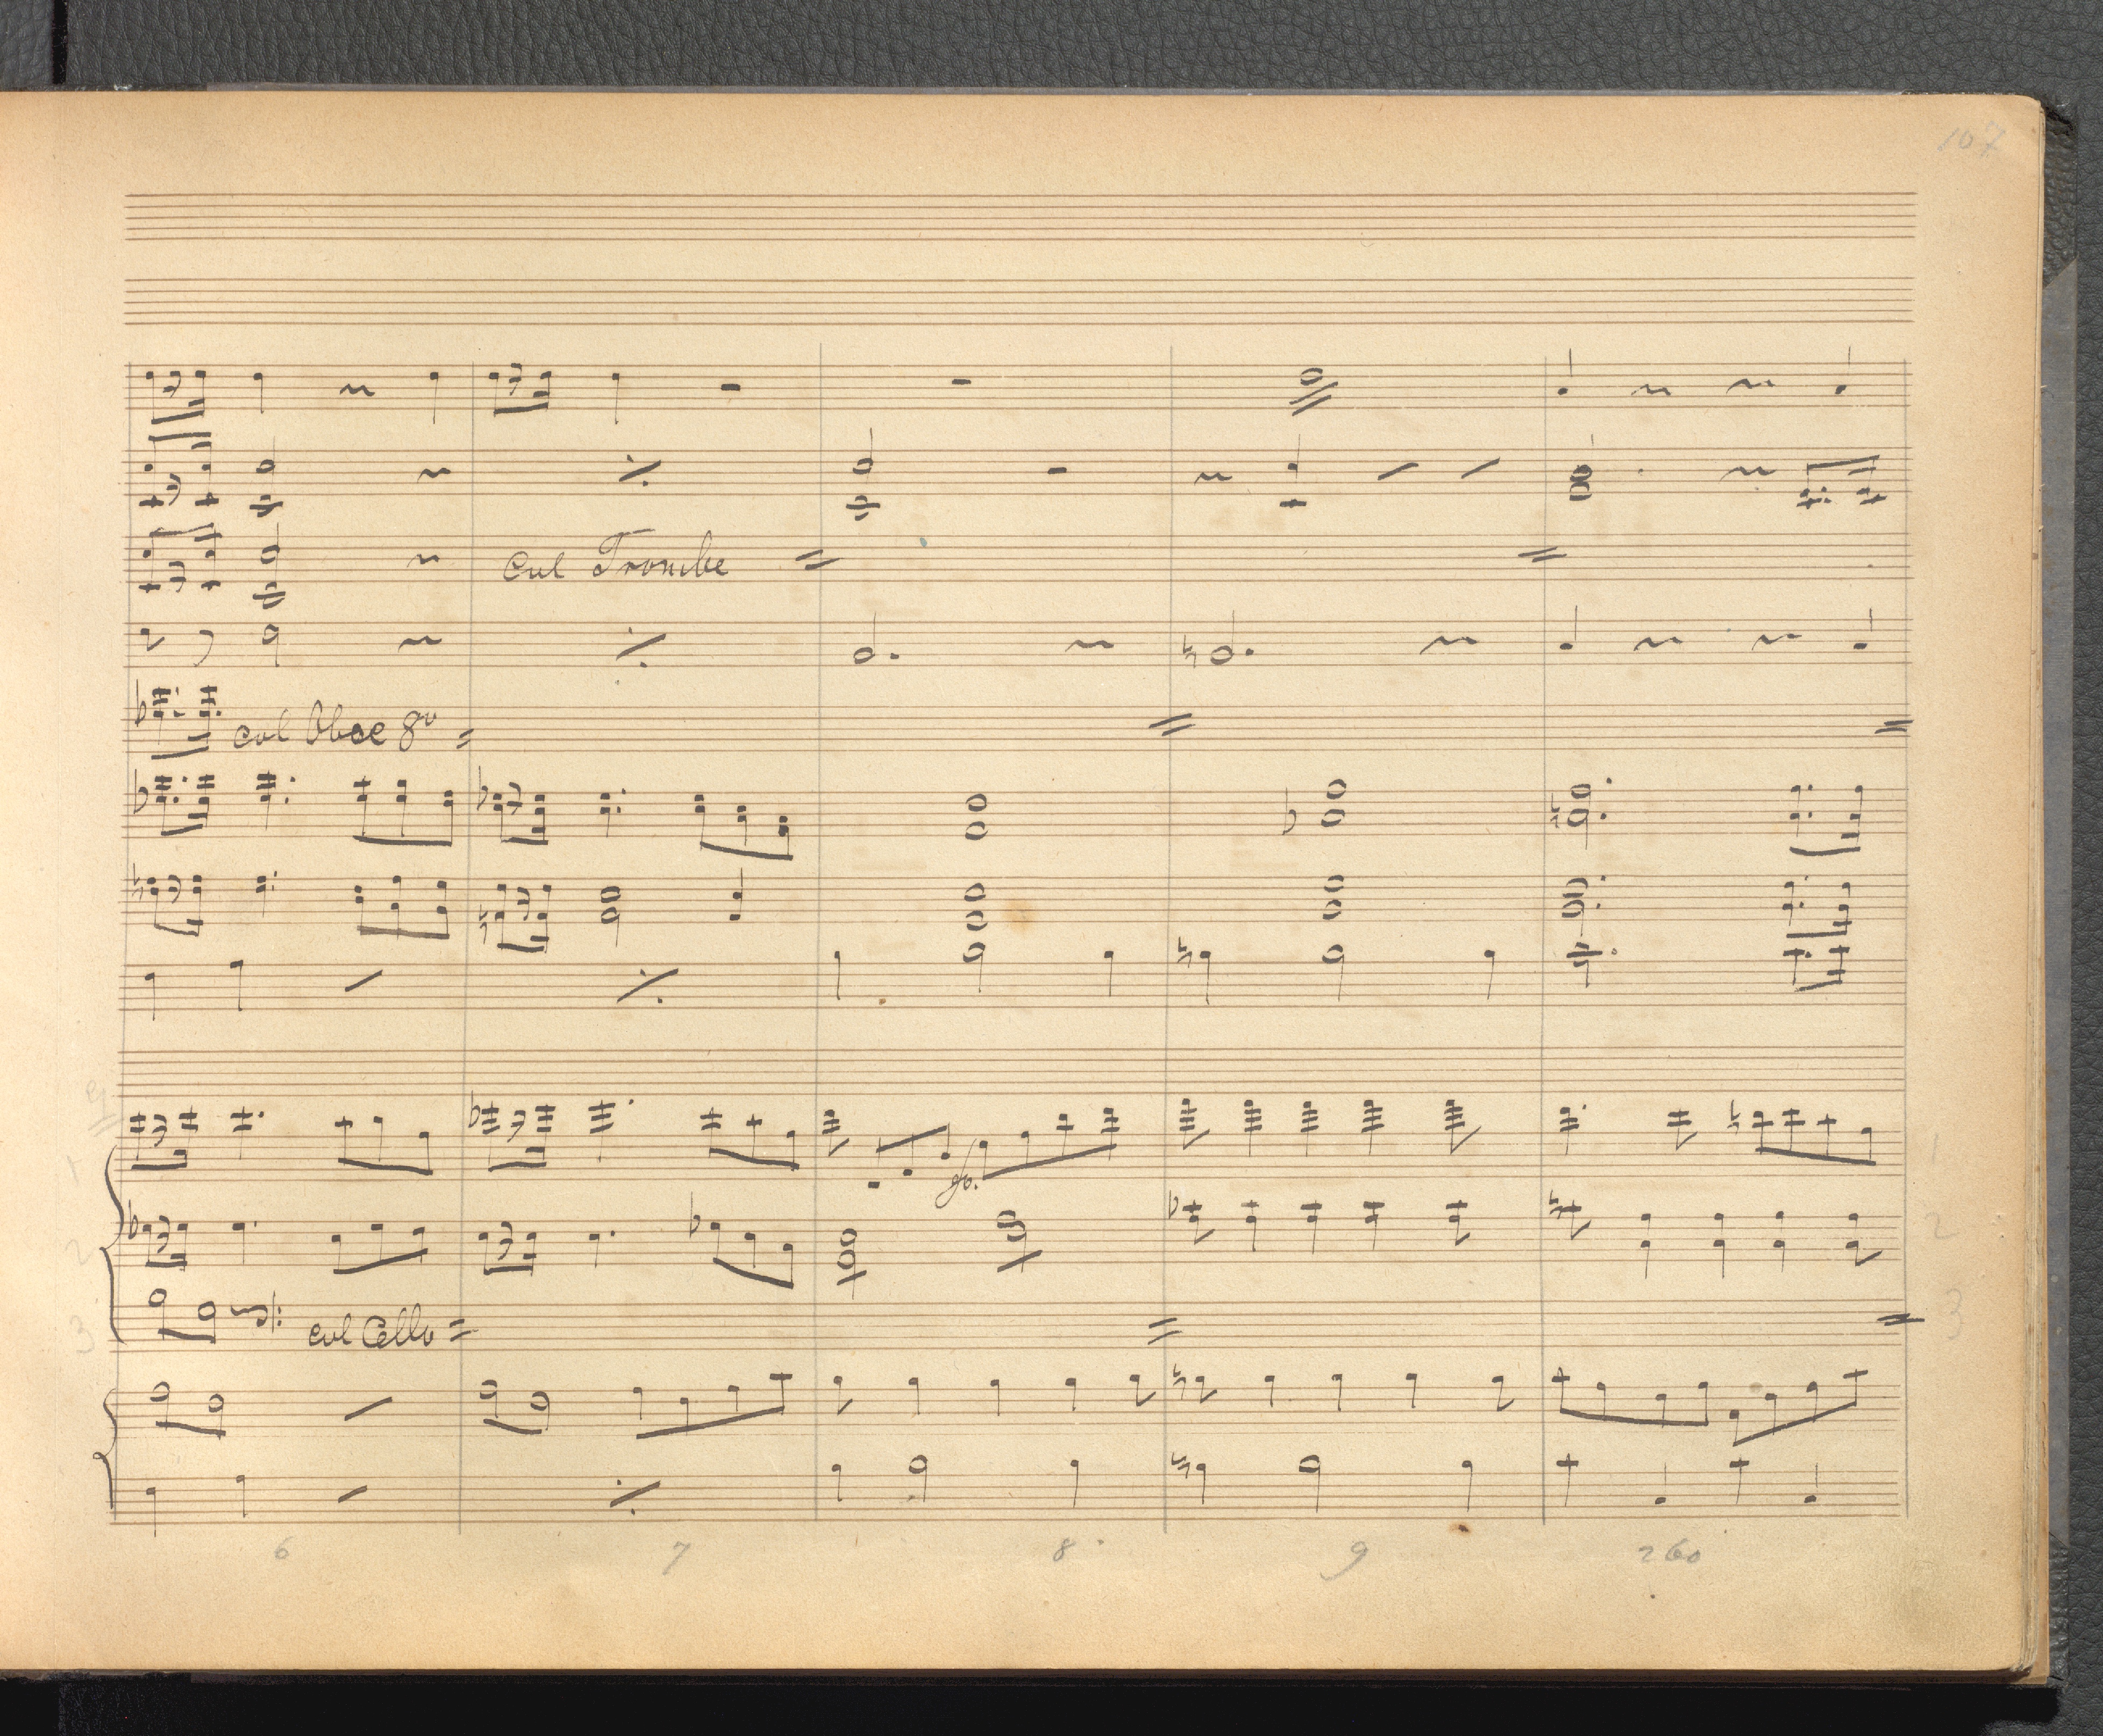 107
col Trombe
col Oboe 8va
1 1
2 2
3 col Cello 3
6 7 8 9 260